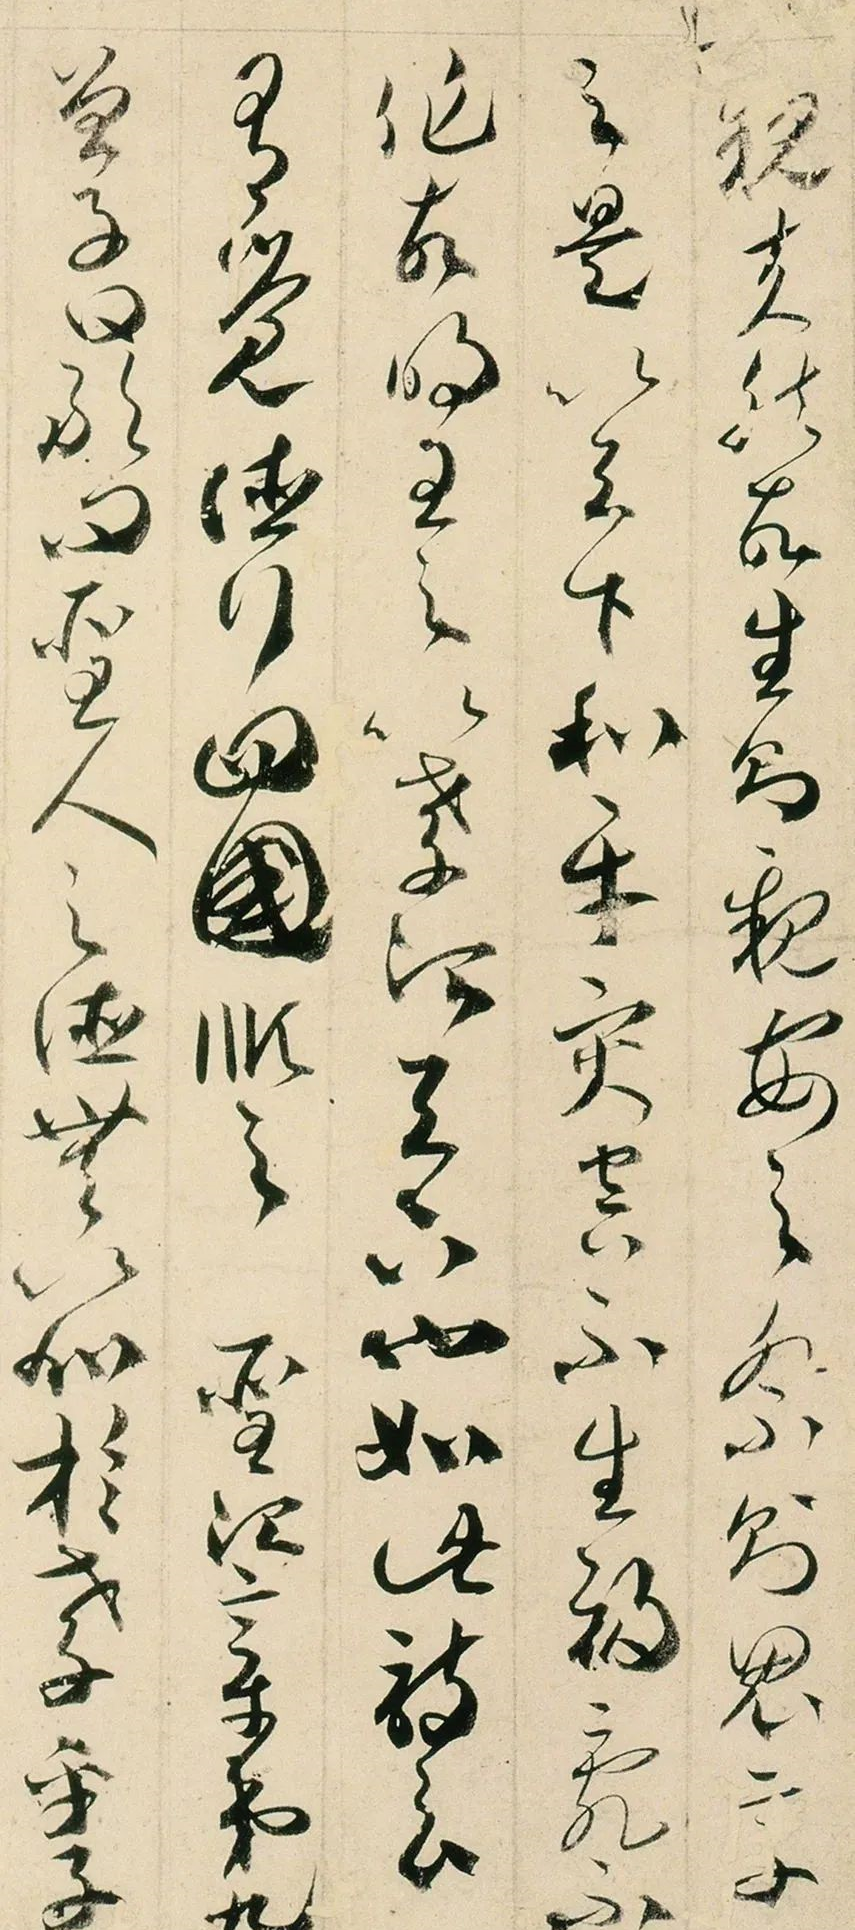 親夫然故生則親安之祭則鬼享
之是以天下和平災害不生禍亂不
作故明王之以孝治天下也如此詩云
有覺德行四國順之 聖治章第九
曾子曰敢問聖人之德無以加於孝乎子